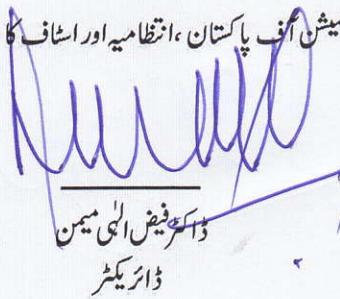 میشن آف پاکستان ،انتظامیہ اور اسٹاف کا
ڈاکٹر فیض الہٰی میمن
ڈائریکٹر